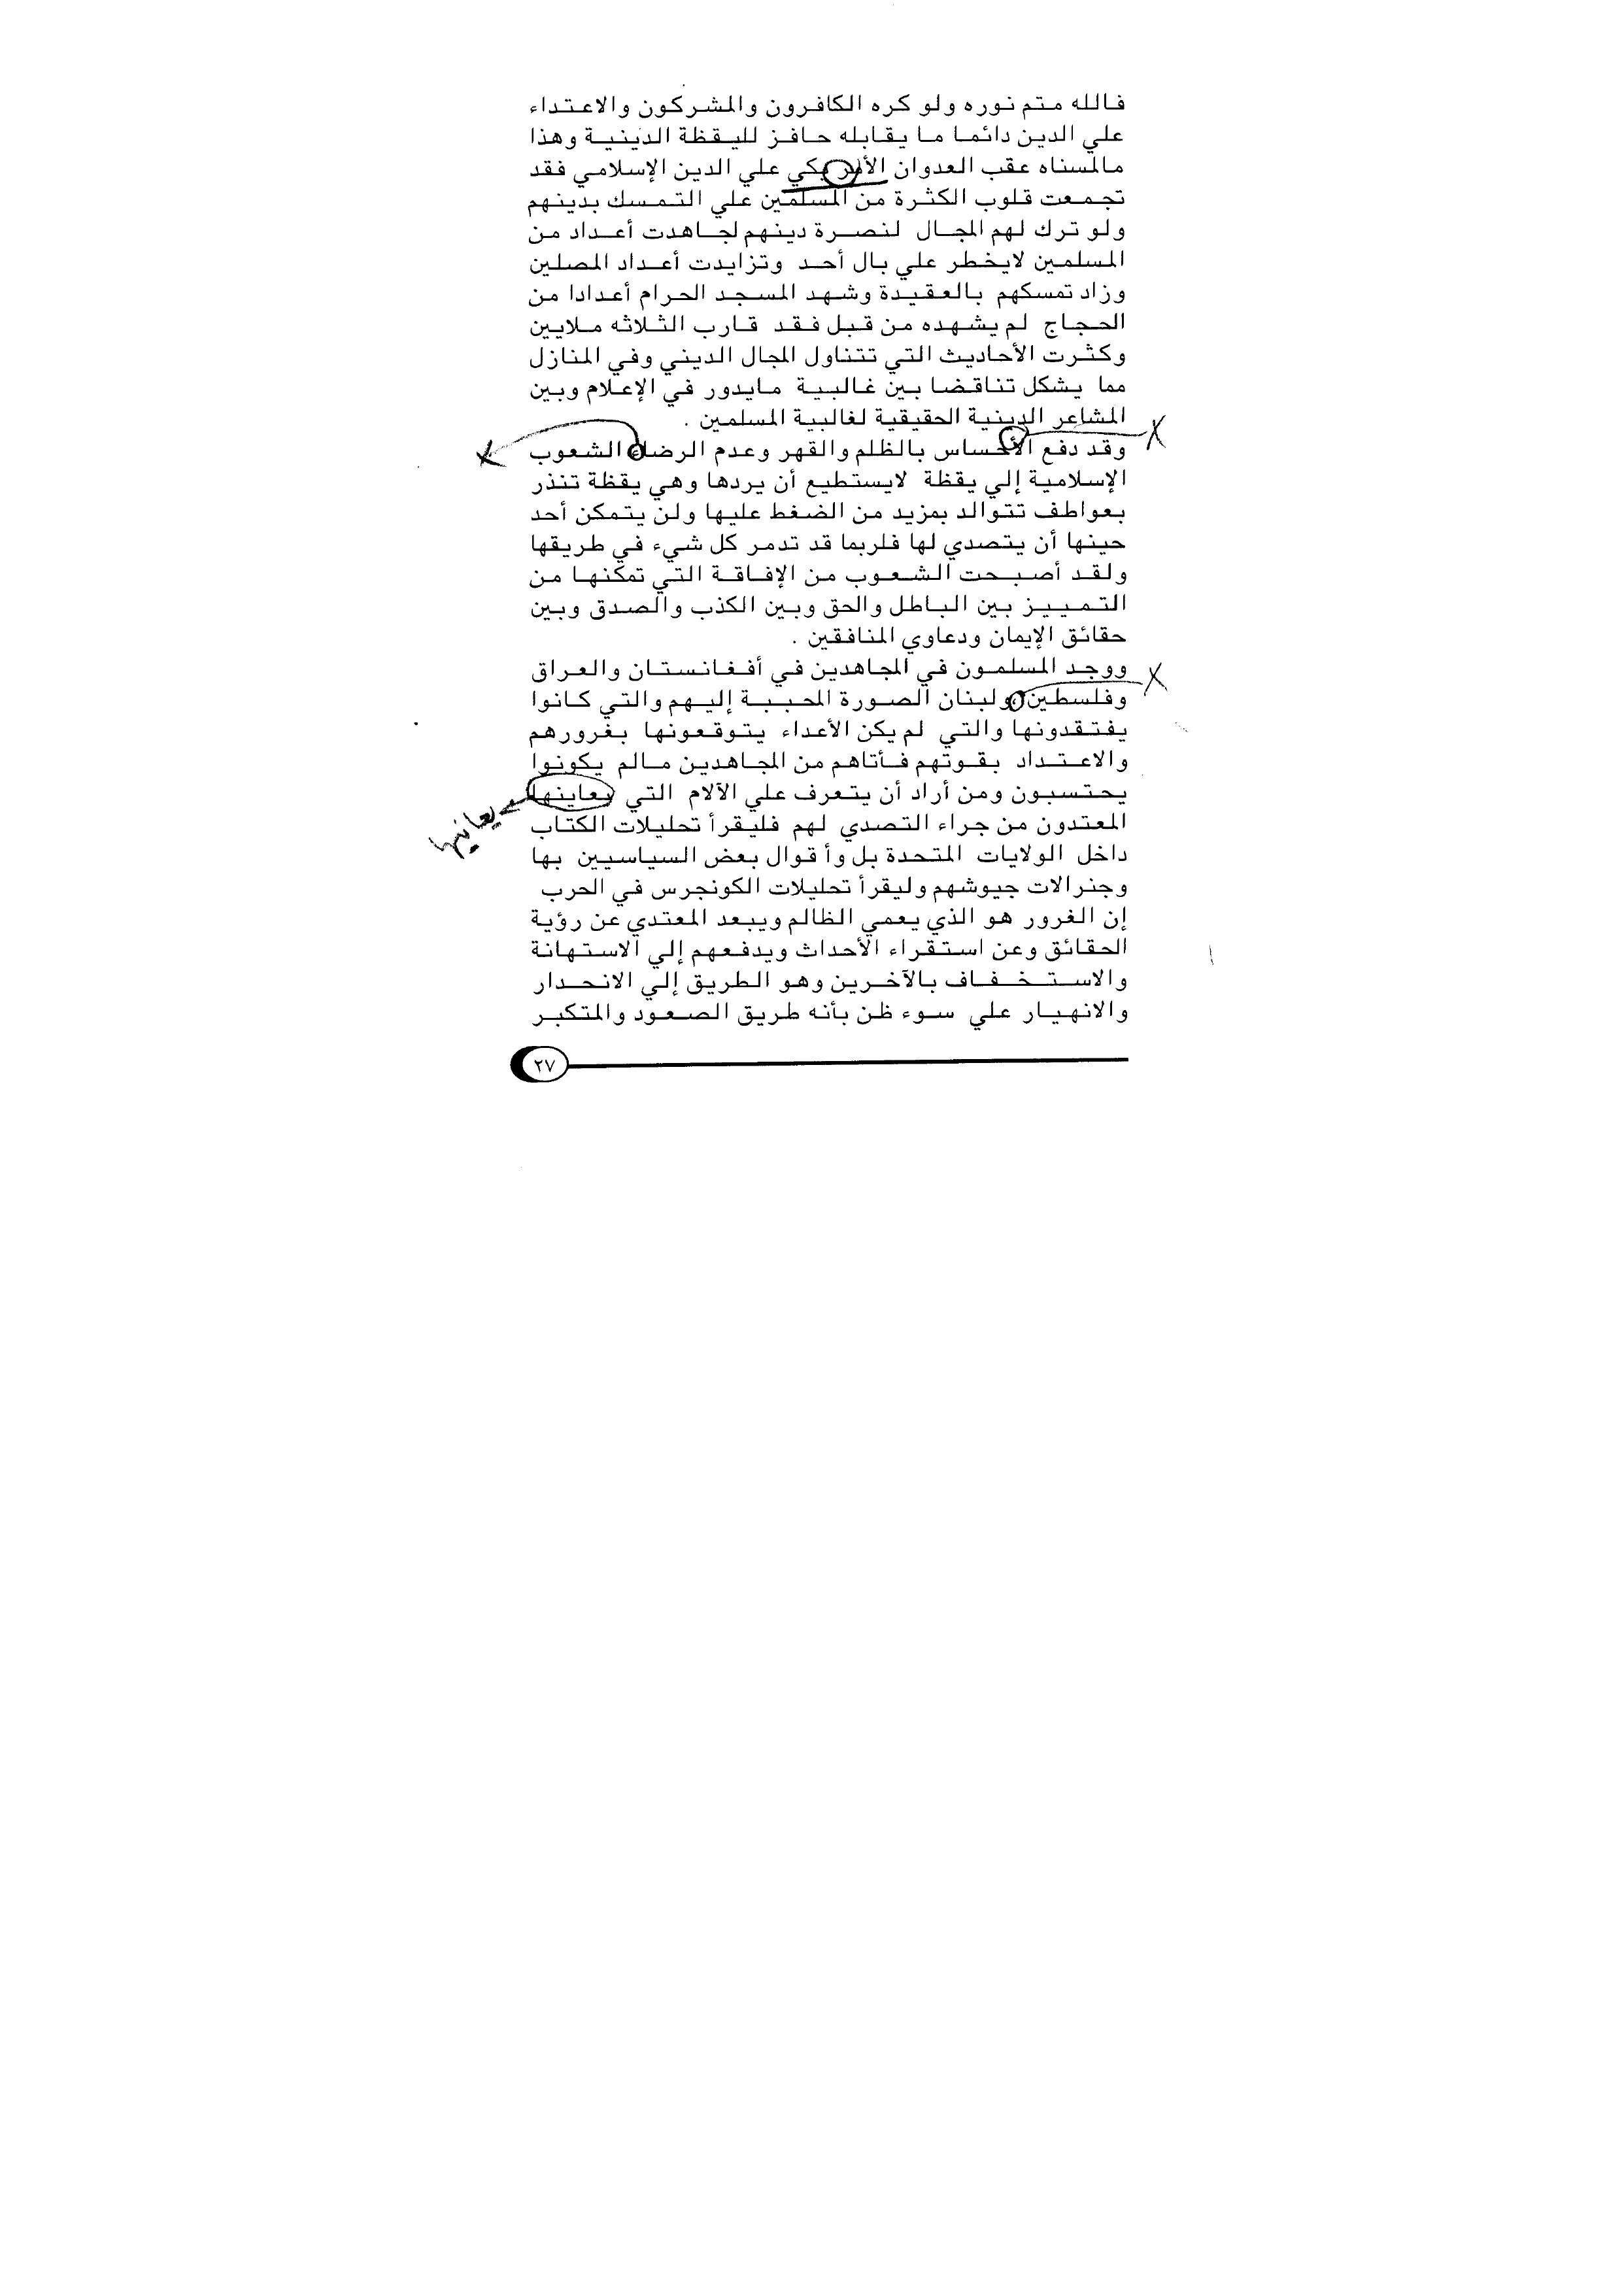 فالله متم نوره ولو كره الكافرون والمشركون والاعتداء
علي الدين دائما ما يقابله حافز لليقظة الدينية وهذا
مالمسناه عقب العدوان الأمريكي علي الدين الإسلامي فقد
تجمعت قلوب الكثرة من المسلمين علي التمسك بدينهم
ولو ترك لهم المجال لنصرة دينهم لجاهدت أعداد من
المسلمين لايخطر علي بال أحد وتزايدت أعداد المصلين
وزاد تمسكهم بالعقيدة وشهد المسجد الحرام أعدادا من
الحجاج لم يشهده من قبل فقد قارب الثلاثه ملايين
وكثرت الأحاديث التي تتناول المجال الديني وفي المنازل
مما يشكل تناقضا بين غالبية مايدور في الإعلام وبين
المشاعر الدينية الحقيقية لغالبية المسلمين .
وقد دفع الأحساس بالظلم والقهر وعدم الرضاء الشعوب
الإسلامية إلي يقظة لايستطيع أن يردها وهي يقظة تنذر
بعواطف تتوالد بمزيد من الضغط عليها ولن يتمكن أحد
حينها أن يتصدي لها فلربما قد تدمر كل شيء في طريقها
ولقد أصبحت الشعوب من الإفاقة التي تمكنها من
التمييز بين الباطل والحق وبين الكذب والصدق وبين
حقائق الإيمان ودعاوي المنافقين .
ووجد المسلمون في المجاهدين في أفغانستان والعراق
وفلسطين ولبنان الصورة المحببة إليهم والتي كانوا
يفتقدونها والتي لم يكن الأعداء يتوقعونها بغرورهم
والاعتداد بقوتهم فأتاهم من المجاهدين مالم يكونوا
يحتسبون ومن أراد أن يتعرف علي الآلام التي يعاينها
يعانيها
المعتدون من جراء التصدي لهم فليقرأ تحليلات الكتاب
داخل الولايات المتحدة بل وأقوال بعض السياسيين بها
وجنرالات جيوشهم وليقرأ تحليلات الكونجرس في الحرب
إن الغرور هو الذي يعمي الظالم ويبعد المعتدي عن رؤية
الحقائق وعن استقراء الأحداث ويدفعهم إلي الاستهانة
والاستخفاف بالآخرين وهو الطريق إلي الانحدار
والانهيار علي سوء ظن بأنه طريق الصعود والمتكبر
٢٧